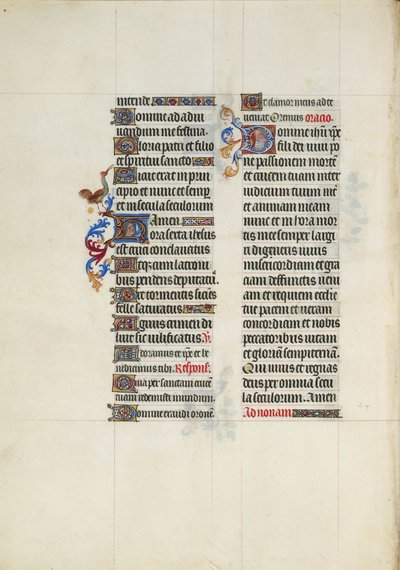 intende
Domine ad adiu
uandum me festina.
Gloria patri et filio
et spiritui sancto
Sicut erat in prin
cipio et nunc et semp
et in secula seculorum
Amen
Hora sexta ihesus
est cruci conclauatus
Atq3 cum latroni
bus pendens deputatus.
Pre tormentis siciens
felle saturatus
Agnus crimen di
luit sic iustificatus V.
Adoramus te xpe et be
nedicimus tibi. Respons.
Quia per sanctam cruce
tuam redemisti mundum.
Domine exaudi oronem.
Et clamor meus ad te
ueniat Oremus oracio.
Domine ihu xpe
fili dei uiui po
ne passionem morte
et crucem tuam inter
iudicium tuum met
et animam meam
nunc et in hora mor
tis mee et largi
ri digneris uiuis
misericordiam et gra
ciam defunctis ueni
am et requiem eccle
tue pacem et ueram
concordiam et nobis
peccatoribus uitam
et gloriam sempiternam.
Qui uiuis et regnas
deus per omnia secu
la seculorum. Amen
Ad nonam